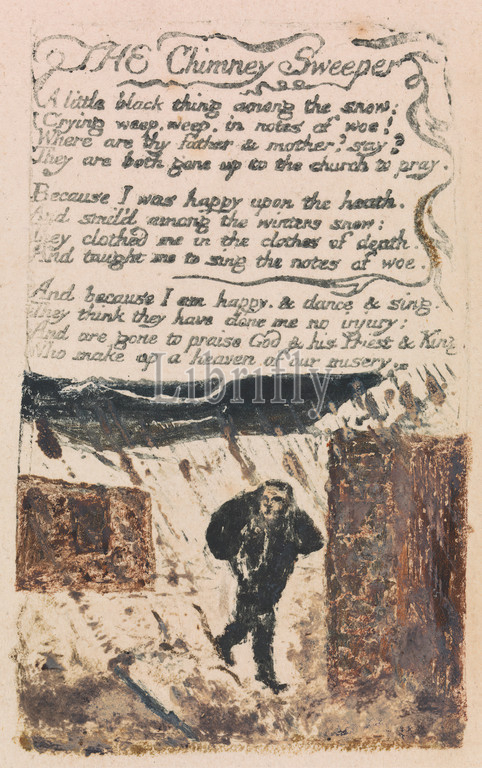 THE Chimney Sweeper
A little black thing among the snow:
Crying weep, weep, in notes of woe!
Where are thy father & mother? say?
They are both gone up to the church to pray.
Because I was happy upon the heath.
And smil'd among the winters snow:
They clothed me in the clothes of death.
And taught me to sing the notes of woe.
And because I am happy. & dance & sing
They think they have done me no injury:
And are gone to praise God & his Priest & King
Who make up a heaven of our misery.
Librifly